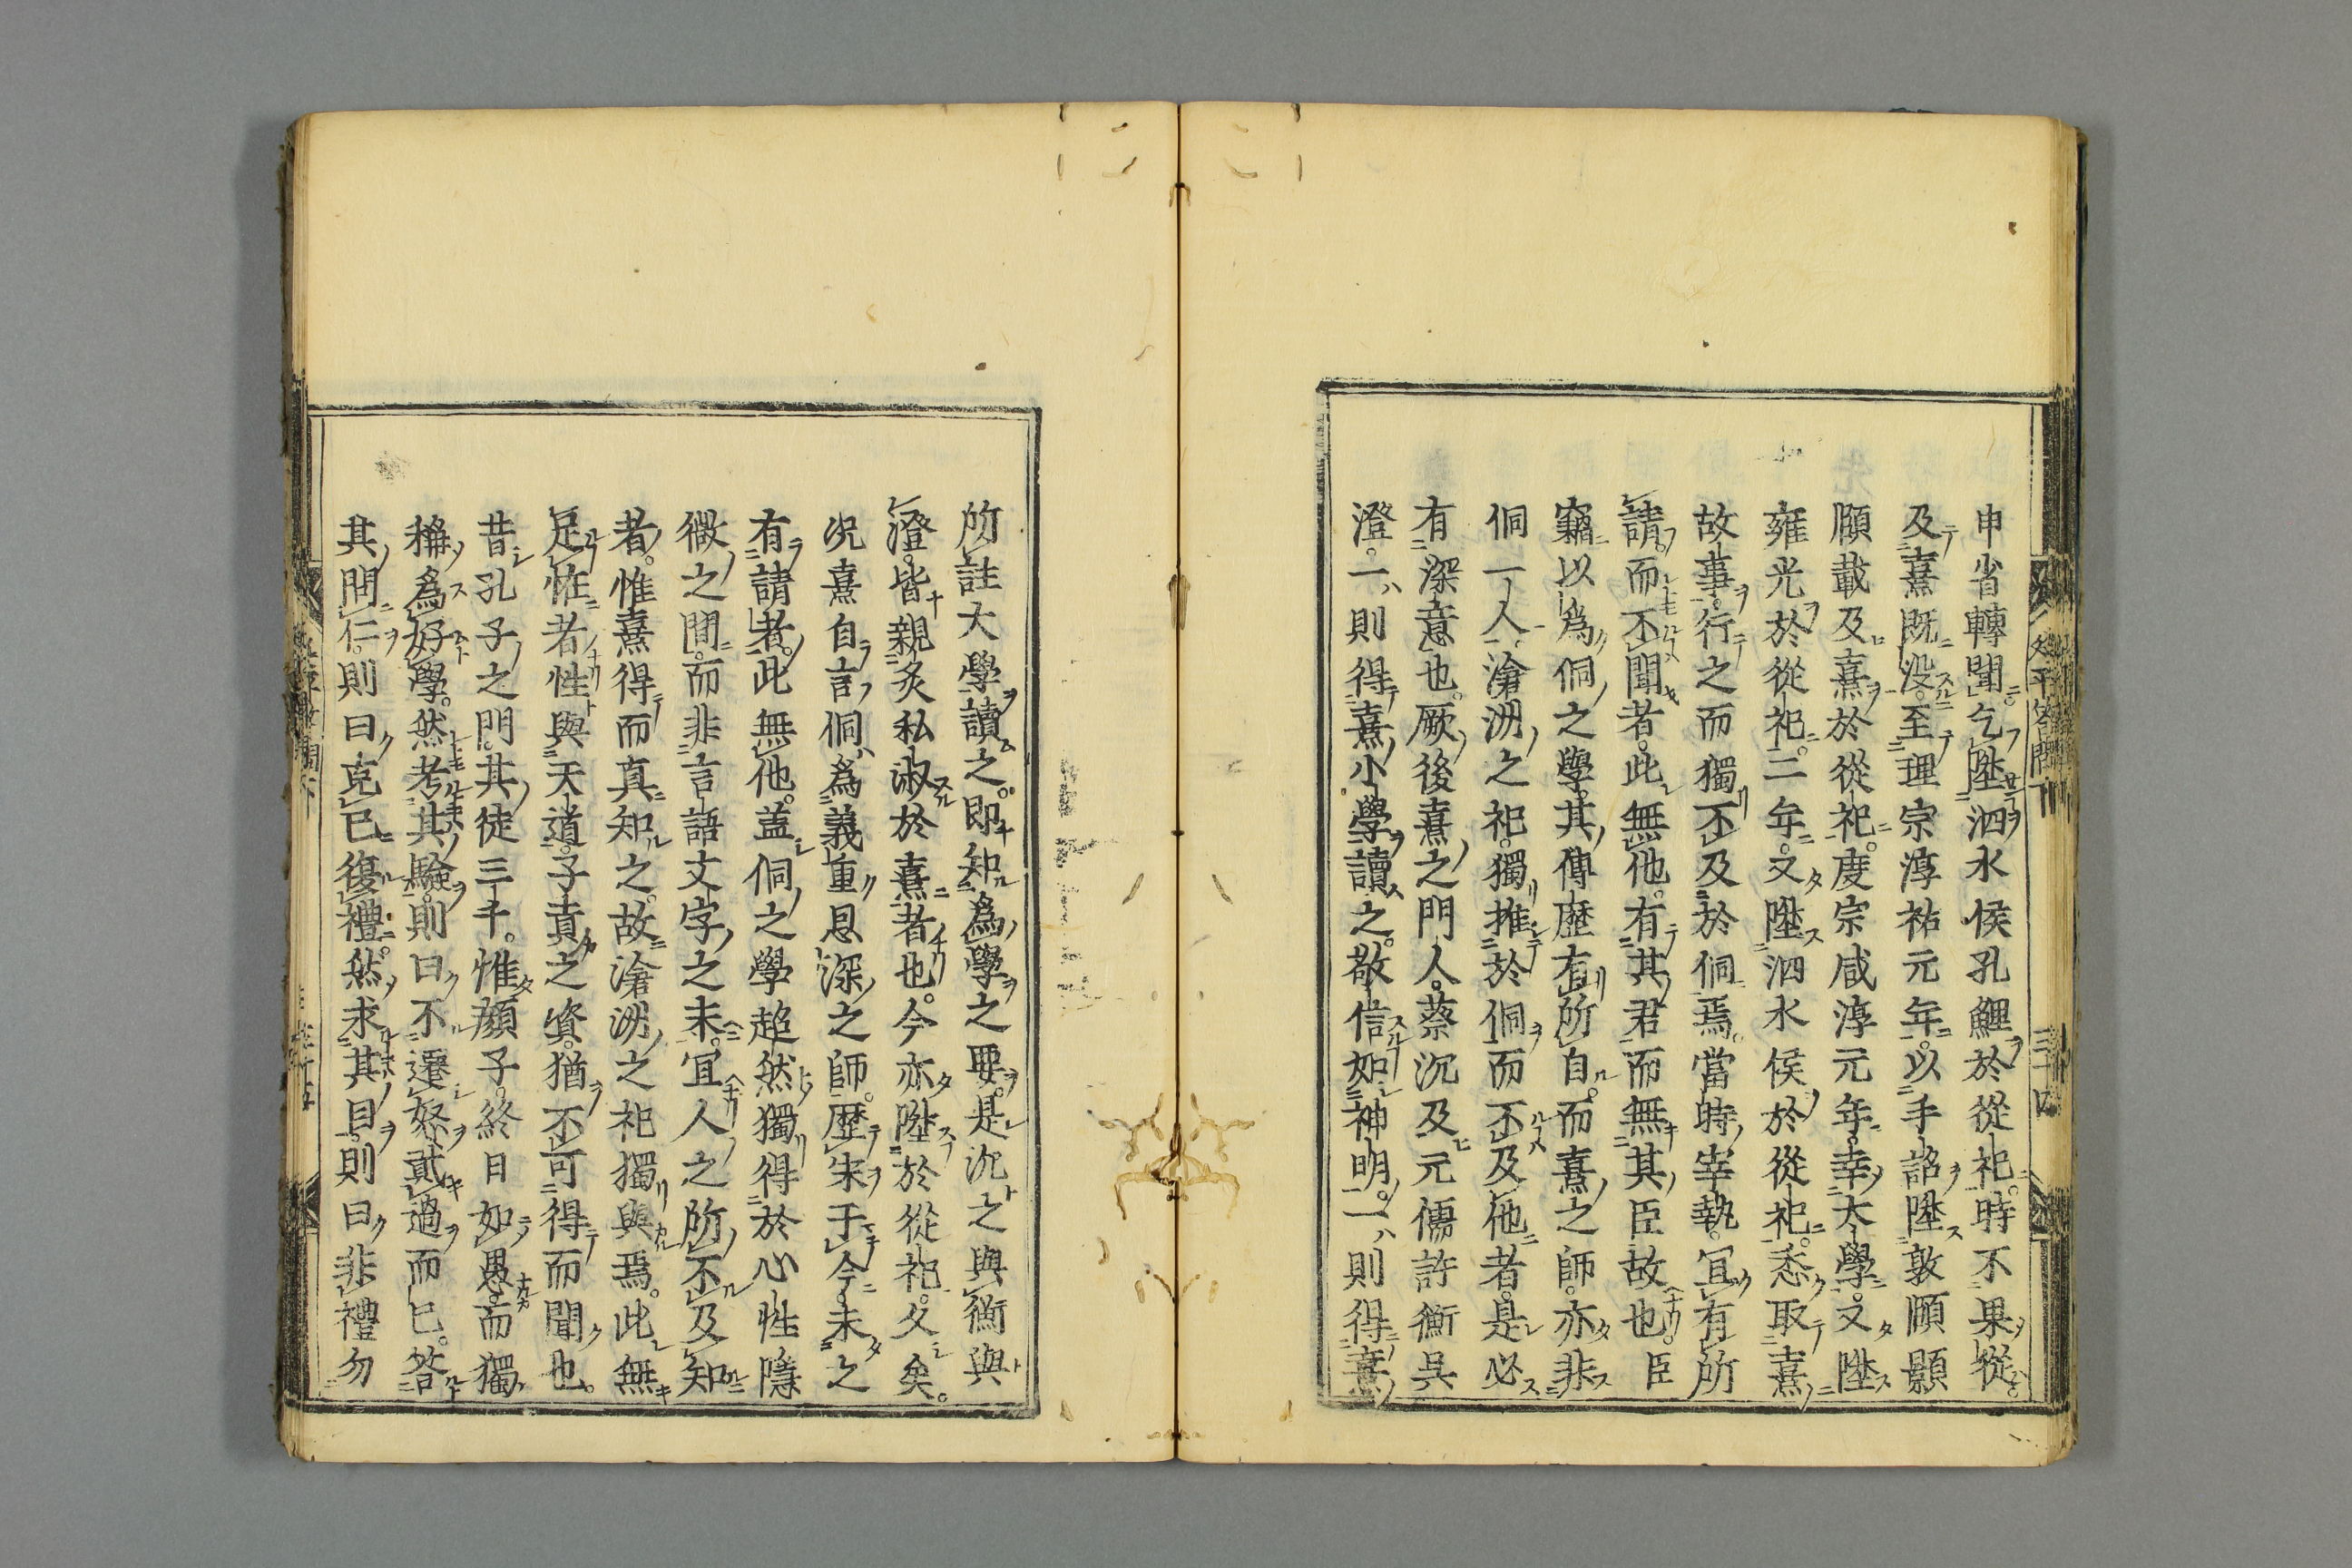 申省轉聞。乞陞泗水侯孔鯉於從祀。時不果從。
及熹既没。至理宗淳祐元年。以手詔陞敦頤顥
頤載及熹於從祀。度宗咸淳元年。幸大學。又陞
雍光於從祀。二年。又陞泗水侯於從祀。悉取熹
故事。行之而獨不及於侗焉。當時宰執。冝有所
請。而不聞者。此無他。有其君而無其臣故也。臣
竊以爲侗之學。其傳歷有所自。而熹之師。亦非
侗一人。滄洲之祀。獨推於侗而不及他者。是必
有深意也。厥後熹之門人。蔡沉及元儒許衡呉
澄。一則得熹小學讀之。敬信如神明。一則得熹
所註大學讀之。即知爲學之要。是沉之與衡與
澄。皆親炙私淑於熹者也。今亦陞於從祀。久矣。
况熹自言侗爲義重恩深之師。歴宋于今。未之
有請者。此無他。蓋侗之學超然獨得於心性隱
微之間。而非言語文字之末。冝人之所不及知
者。惟熹得而真知之。故滄洲之祀獨與焉。此無
足恠者性與天道。子貢之資。猶不可得而聞也。
昔孔子之門。其徒三千。惟顔子。終日如愚。而獨
稱爲好學。然考其驗。則曰不遷怒貳過而已。答
其問仁。則曰克己復禮。然求其目。則曰非禮勿
延平答問下
三十四